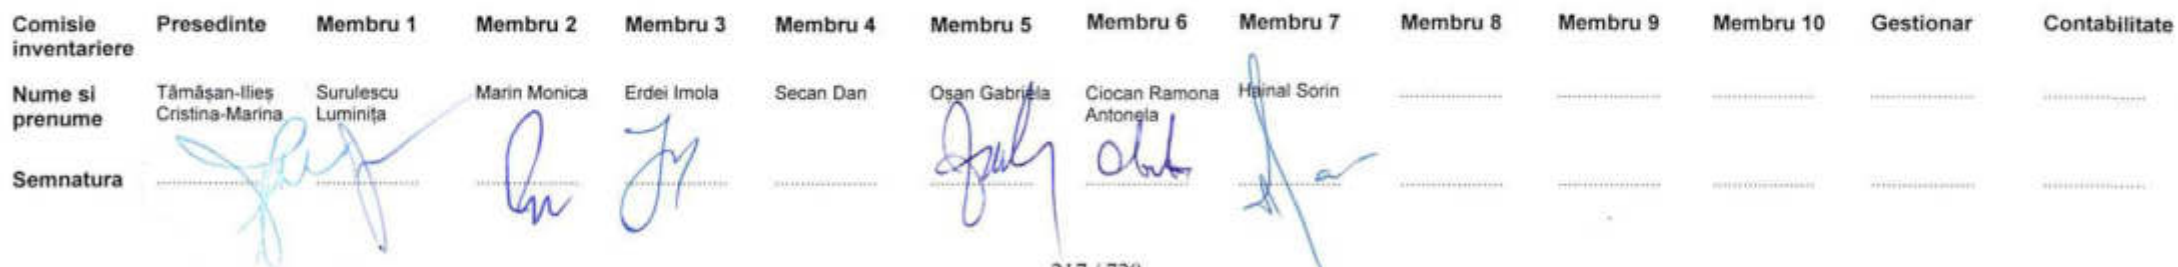 Comisie inventariere Presedinte Membru 1 Membru 2 Membru 3 Membru 4 Membru 5 Membru 6 Membru 7 Membru 8 Membru 9 Membru 10 Gestionar Contabilitate
Nume si prenume Tămășan-Ilieș Cristina-Marina Surulescu Luminița Marin Monica Erdei Imola Secan Dan Oșan Gabriela Ciocan Ramona Antonela Hainal Sorin
Semnatura